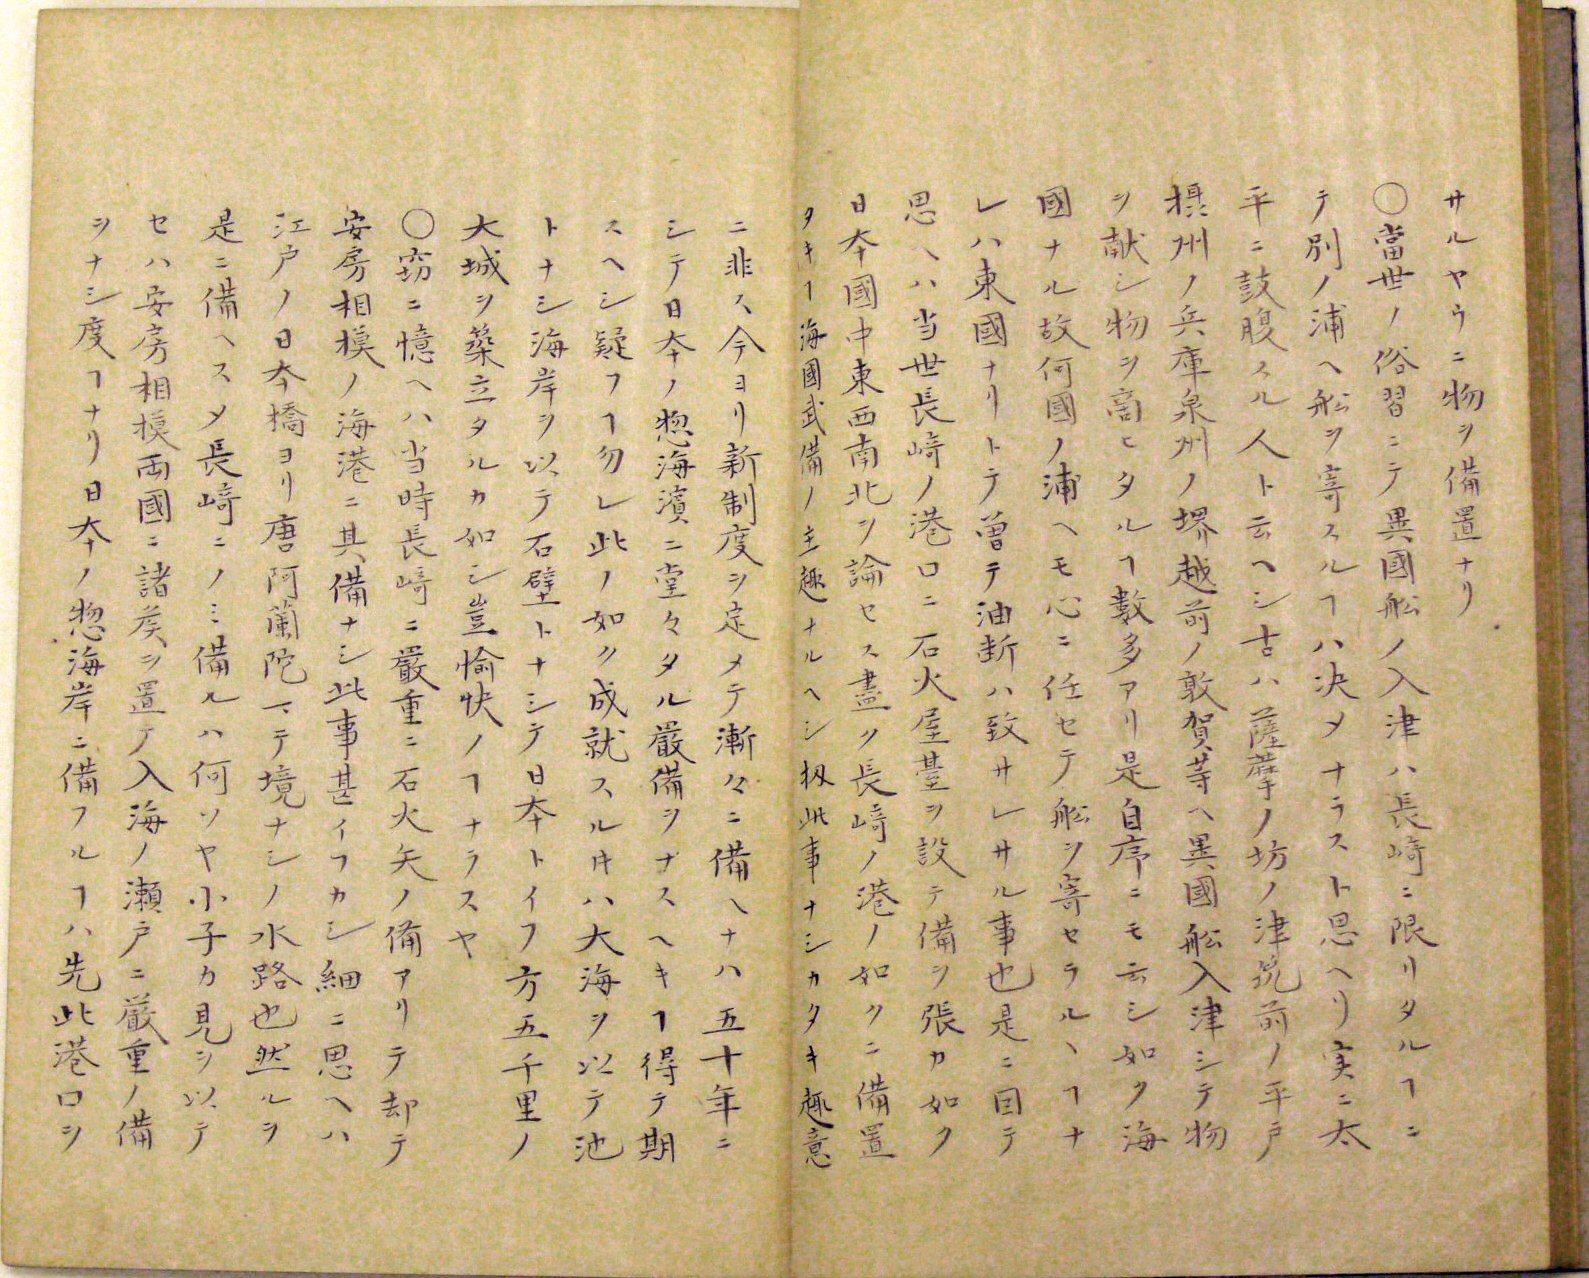 サルヤウニ物ヲ備置ナリ
〇當世ノ俗習ニテ異國舩ノ入津ハ長﨑ニ限リタルヿニ
テ別ノ浦ヘ舩ヲ寄スルヿハ決メナラスト思ヘリ実ニ太
平ニ鼓腹スル人ト云ヘシ古ハ薩摩ノ坊ノ津筑前ノ平戸
摂州ノ兵庫泉州ノ堺越前ノ敦賀等ヘ異國舩入津シテ物
ヲ献シ物ヲ商ヒタルヿ數多アリ是自序ニモ云シ如ク海
國ナル故何國ノ浦ヘモ心ニ任セテ舩ヲ寄セラルヽヿナ
レハ東國ナリトテ曽テ油断ハ致サレサル事也是ニ因テ
思ヘハ当世長﨑ノ港口ニ石火屋臺ヲ設テ備ヲ張カ如ク
日本國中東西南北ヲ論セス盡ク長﨑ノ港ノ如クニ備置
タキヿ海國武備ノ主趣ナルヘシ扨此事ナシカタキ趣意
ニ非ス今ヨリ新制度ヲ定メテ漸々ニ備ヘナハ五十年ニ
シテ日本ノ惣海濱ニ堂々タル厳備ヲナスヘキヿ得テ期
スヘシ疑フヿ勿レ此ノ如ク成就スル𪜈ハ大海ヲ以テ池
トナシ海岸ヲ以テ石壁トナシテ日本トイフ方五千里ノ
大城ヲ築立タルカ如シ豈愉快ノヿナラスヤ
〇窃ニ憶ヘハ当時長﨑ニ嚴重ニ石火矢ノ備アリテ却テ
安房相模ノ海港ニ其備ナシ此事甚イフカシ細ニ思ヘハ
江戸ノ日本橋ヨリ唐阿蘭陀マテ境ナシノ水路也然ルヲ
是ニ備ヘスメ長﨑ニノミ備ルハ何ソヤ小子カ見ヲ以テ
セハ安房相模両國ニ諸矦ヲ置テ入海ノ瀬戸ニ嚴重ノ備
ヲナシ度ヿナリ日本ノ惣海岸ニ備フルヿハ先此港口ヲ